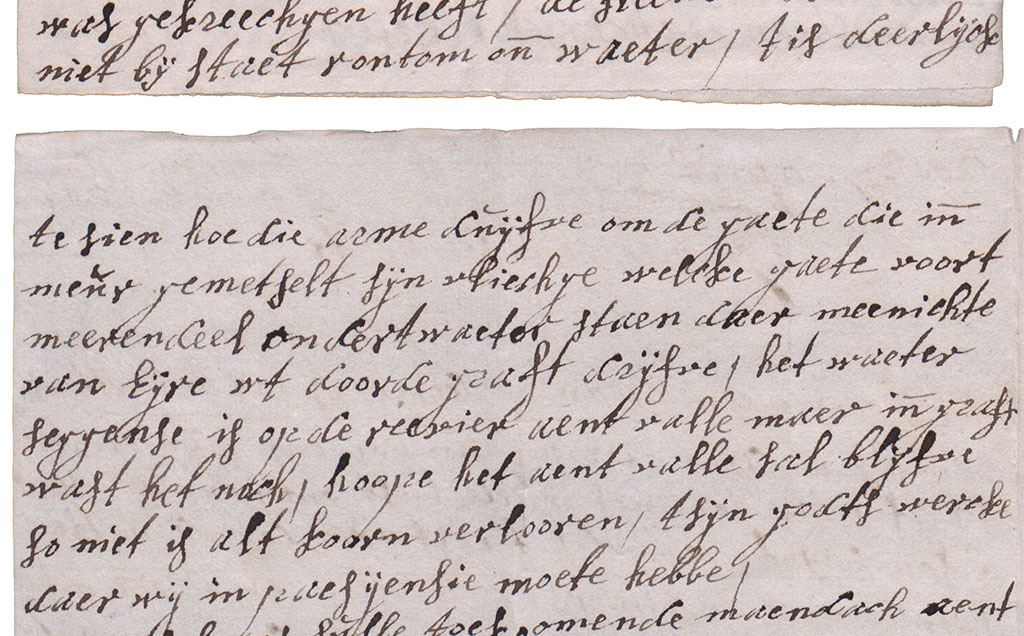 was gekreechgen heeft / de
niet bÿ staet rontom on̄ waeter / t is deerlÿcke
te sien hoe die arme duÿfve om de gaete die in̄
meur gemetselt sÿn vliechge welcke gaete voort
meerendeel ondertwaeter staen daer meenichte
van Eÿre wt doorde graft drÿfve / het waeter
seggense is opde reevier aent valle maer in̄ graft
wast het noch / hoope het aent valle sal blÿfve
so niet is alt koorn verlooren / tsÿn godts wercke
daer wÿ in pacsÿensie moete hebbe /
sulle toekomende maendach aent